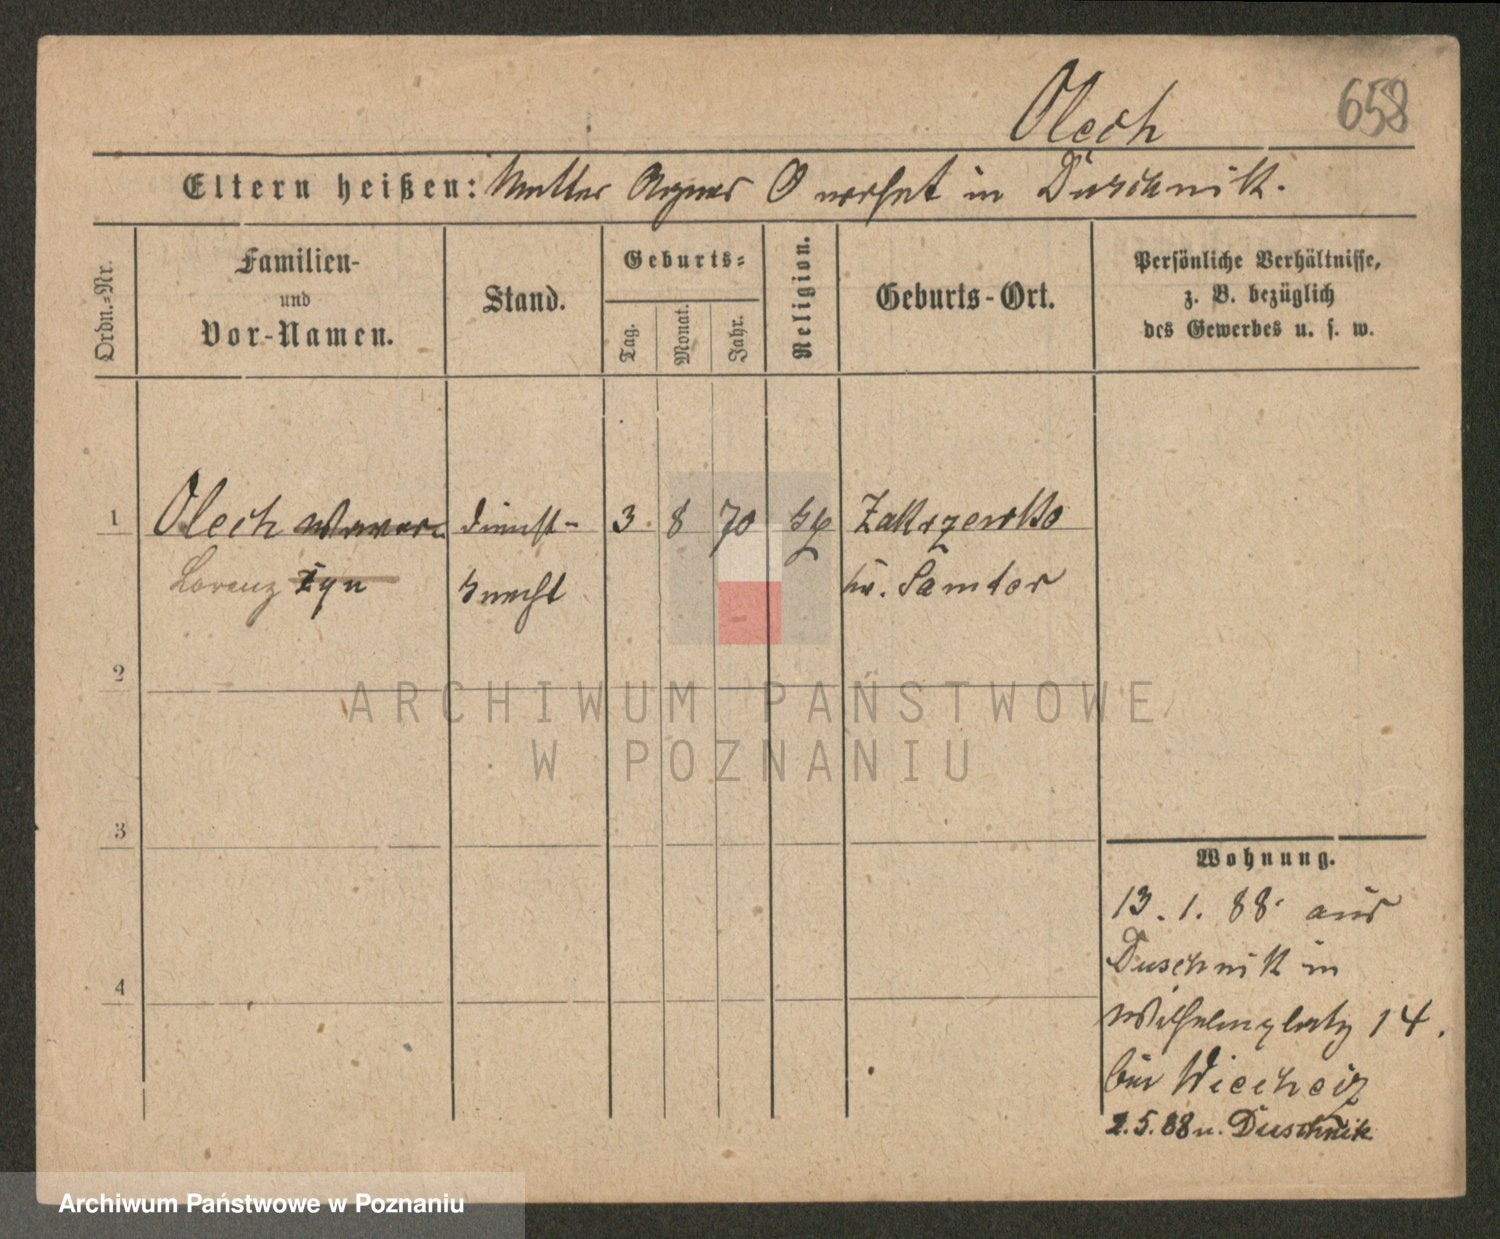 658
Olech
Eltern heißen: Mutter Agnes O wohnt in Duschnik.
Ordn.-Nr.
Familien-
und
Vor-Namen.
Stand.
Geburts-
Tag.
Monat.
Jahr.
Religion.
Geburts-Ort.
Persönliche Verhältnisse,
z. B. bezüglich
des Gewerbes u. s. w.
1 Olech Dienst- 3. 8 70 Zakrzewko
Lorenz knecht Kr. Samter
2
3
4
Wohnung.
13. 1. 88. aus
Duschnik in
Wilhelmplatz 14.
bei
2. 5. 88 n. Duschnik
ARCHIWUM PAŃSTWOWE
W POZNANIU
Archiwum Państwowe w Poznaniu